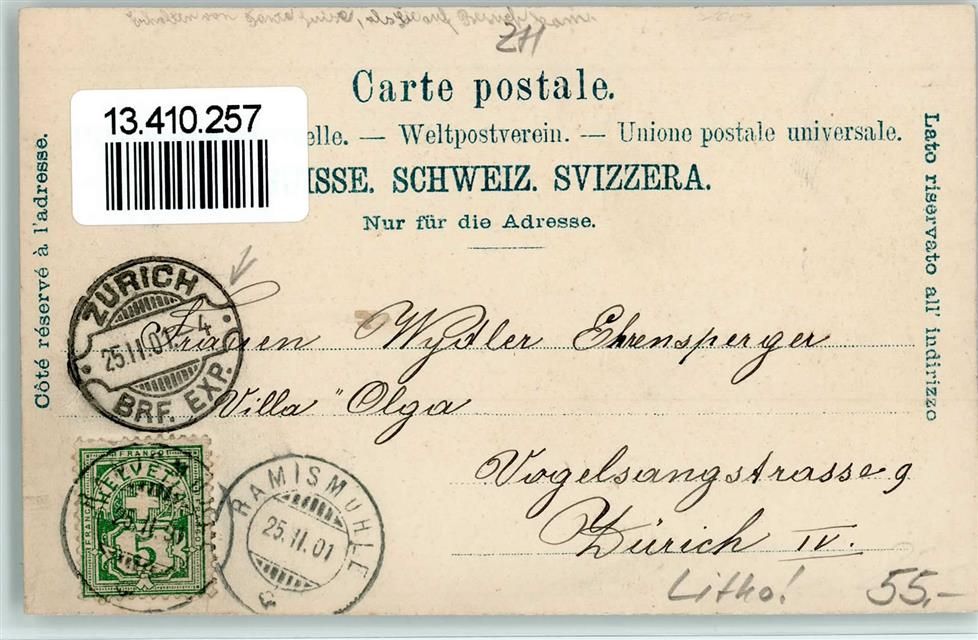 ZH
Carte postale.
13.410.257
elle. — Weltpostverein. — Unione postale universale.
ISSE. SCHWEIZ. SVIZZERA.
Nur für die Adresse.
Côté réservé à l'adresse.
Lato riservato all' indirizzo
ZÜRICH
25.II.01-4
BRF. EXP.
Frauen Wydler Ehrensperger
Villa "Olga
Vogelsangstrasse 9
Zürich IV.
FRANCO
HELVETIA
FRANCO
5
RAMISMÜHLE
25.II.01
Litho! 55,-